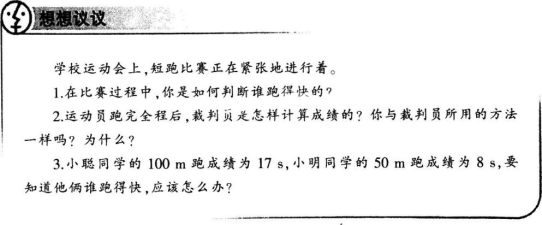 想想议议
学校运动会上,短跑比赛正在紧张地进行着。
1.在比赛过程中,你是如何判断谁跑得快的?
2.运动员跑完全程后,裁判员是怎样计算成绩的? 你与裁判员所用的方法
一样吗? 为什么?
3.小聪同学的 100 m 跑成绩为 17 s,小明同学的 50 m 跑成绩为 8 s,要
知道他俩谁跑得快,应该怎么办?